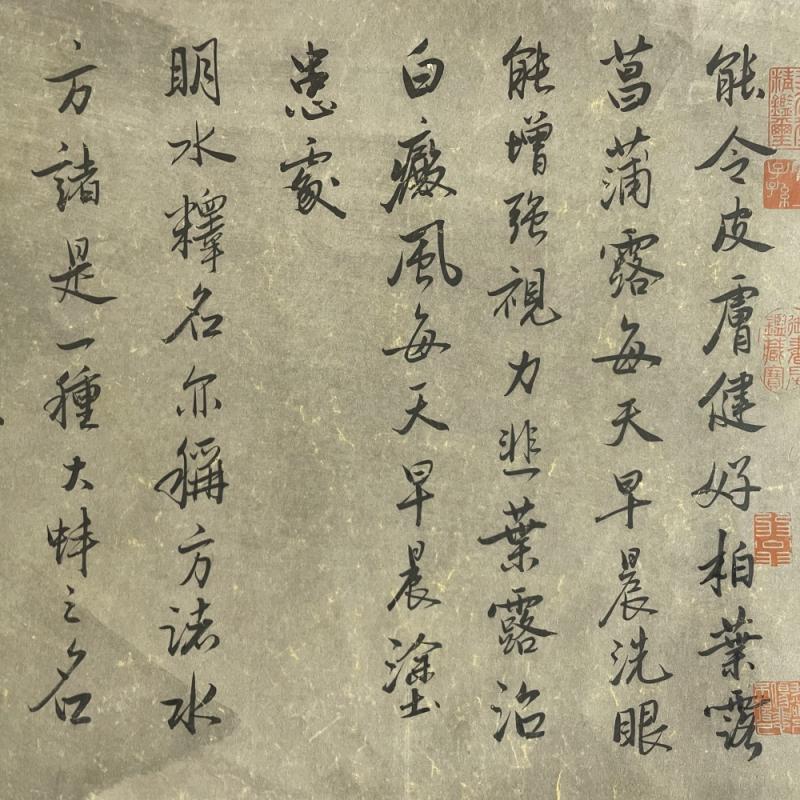 能令皮膚健好柏葉露
菖蒲露每天早晨洗眼
能增強視力韭葉露治
白癜風每天早晨塗
患處
明水釋名亦稱方諸水
方諸是一種大蚌之名